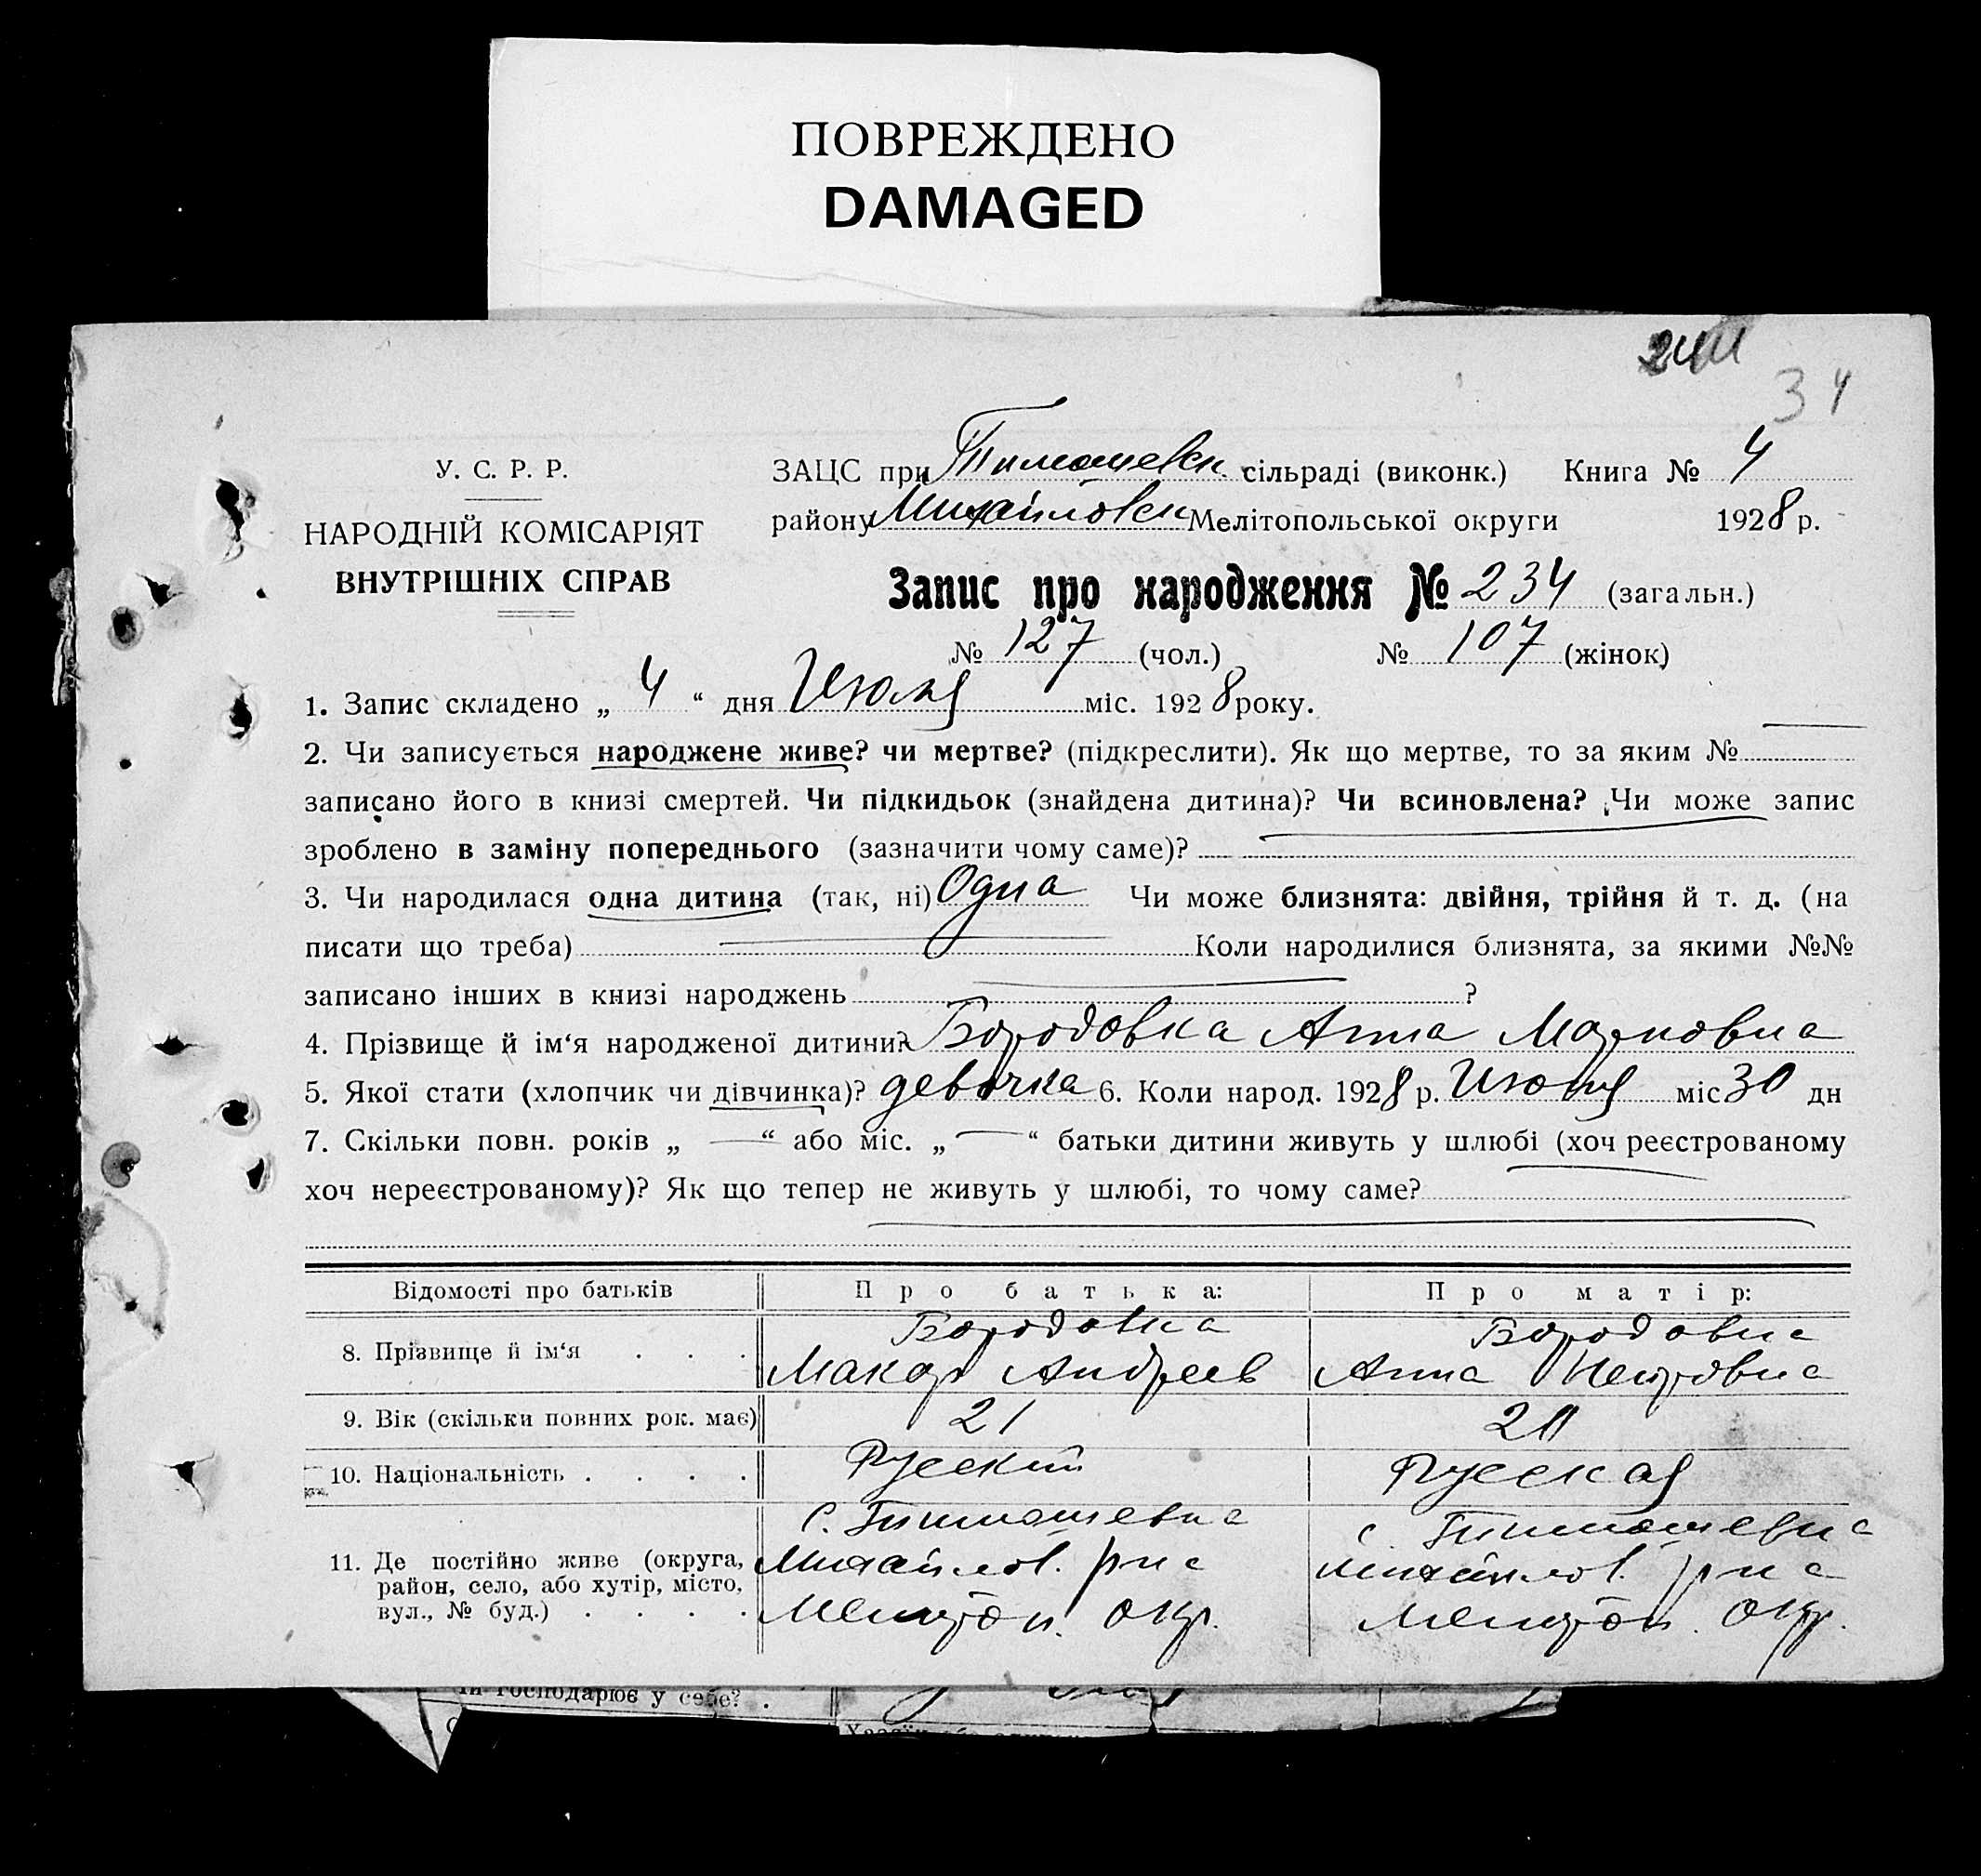 ПОВРЕЖДЕНО
DAMAGED
34
У. С. Р. Р.
НАРОДНІЙ КОМІСАРІЯТ
ВНУТРІШНІХ СПРАВ
ЗАЦС при Тимошевск. сільраді (виконк.) Книга № 4
району Михайловск Мелітопольської округи 1928 р.
Запис про народження № 234 (загальн.)
№ 127 (чол.) № 107 (жінок)
1. Запис складено „ 4 “ дня Июля міс. 1928 року.
2. Чи записується народжене живе? чи мертве? (підкреслити). Як що мертве, то за яким №
записано його в книзі смертей. Чи підкидьок (знайдена дитина)? Чи всиновлена? Чи може запис
зроблено в заміну попереднього (зазначити чому саме)?
3. Чи народилася одна дитина (так, ні) Одна Чи може близнята: двійня, трійня й т. д. (на
писати що треба) Коли народилися близнята, за якими №№
записано інших в книзі народжень ?
4. Прізвище й ім‘я народженої дитини? Бородовка Анна Марковна
5. Якої стати (хлопчик чи дівчинка)? девочка 6. Коли народ. 1928 р. Июня міс 30 дн
7. Скільки повн. років „ — “ або міс. „ — “ батьки дитини живуть у шлюбі (хоч реєстрованому
хоч нереєстрованому)? Як що тепер не живуть у шлюбі, то чому саме?
Відомості про батьків Про батька: Про матір:
8. Прізвище й ім‘я . . . Бородовка Бородовка
Макар Андреев Анна Петровна
9. Вік (скільки повних рок. має) 21
10. Національність . . . . Русский Русская
С. Тимошевка с. Тимошевка
11. Де постійно живе (округа, Михайлов. р-на Михайлов. р-на
район, село, або хутір, місто,
вул., № буд.) . . . . Мелитоп. окр. Мелитоп. окр.
чи господарює у себе? .